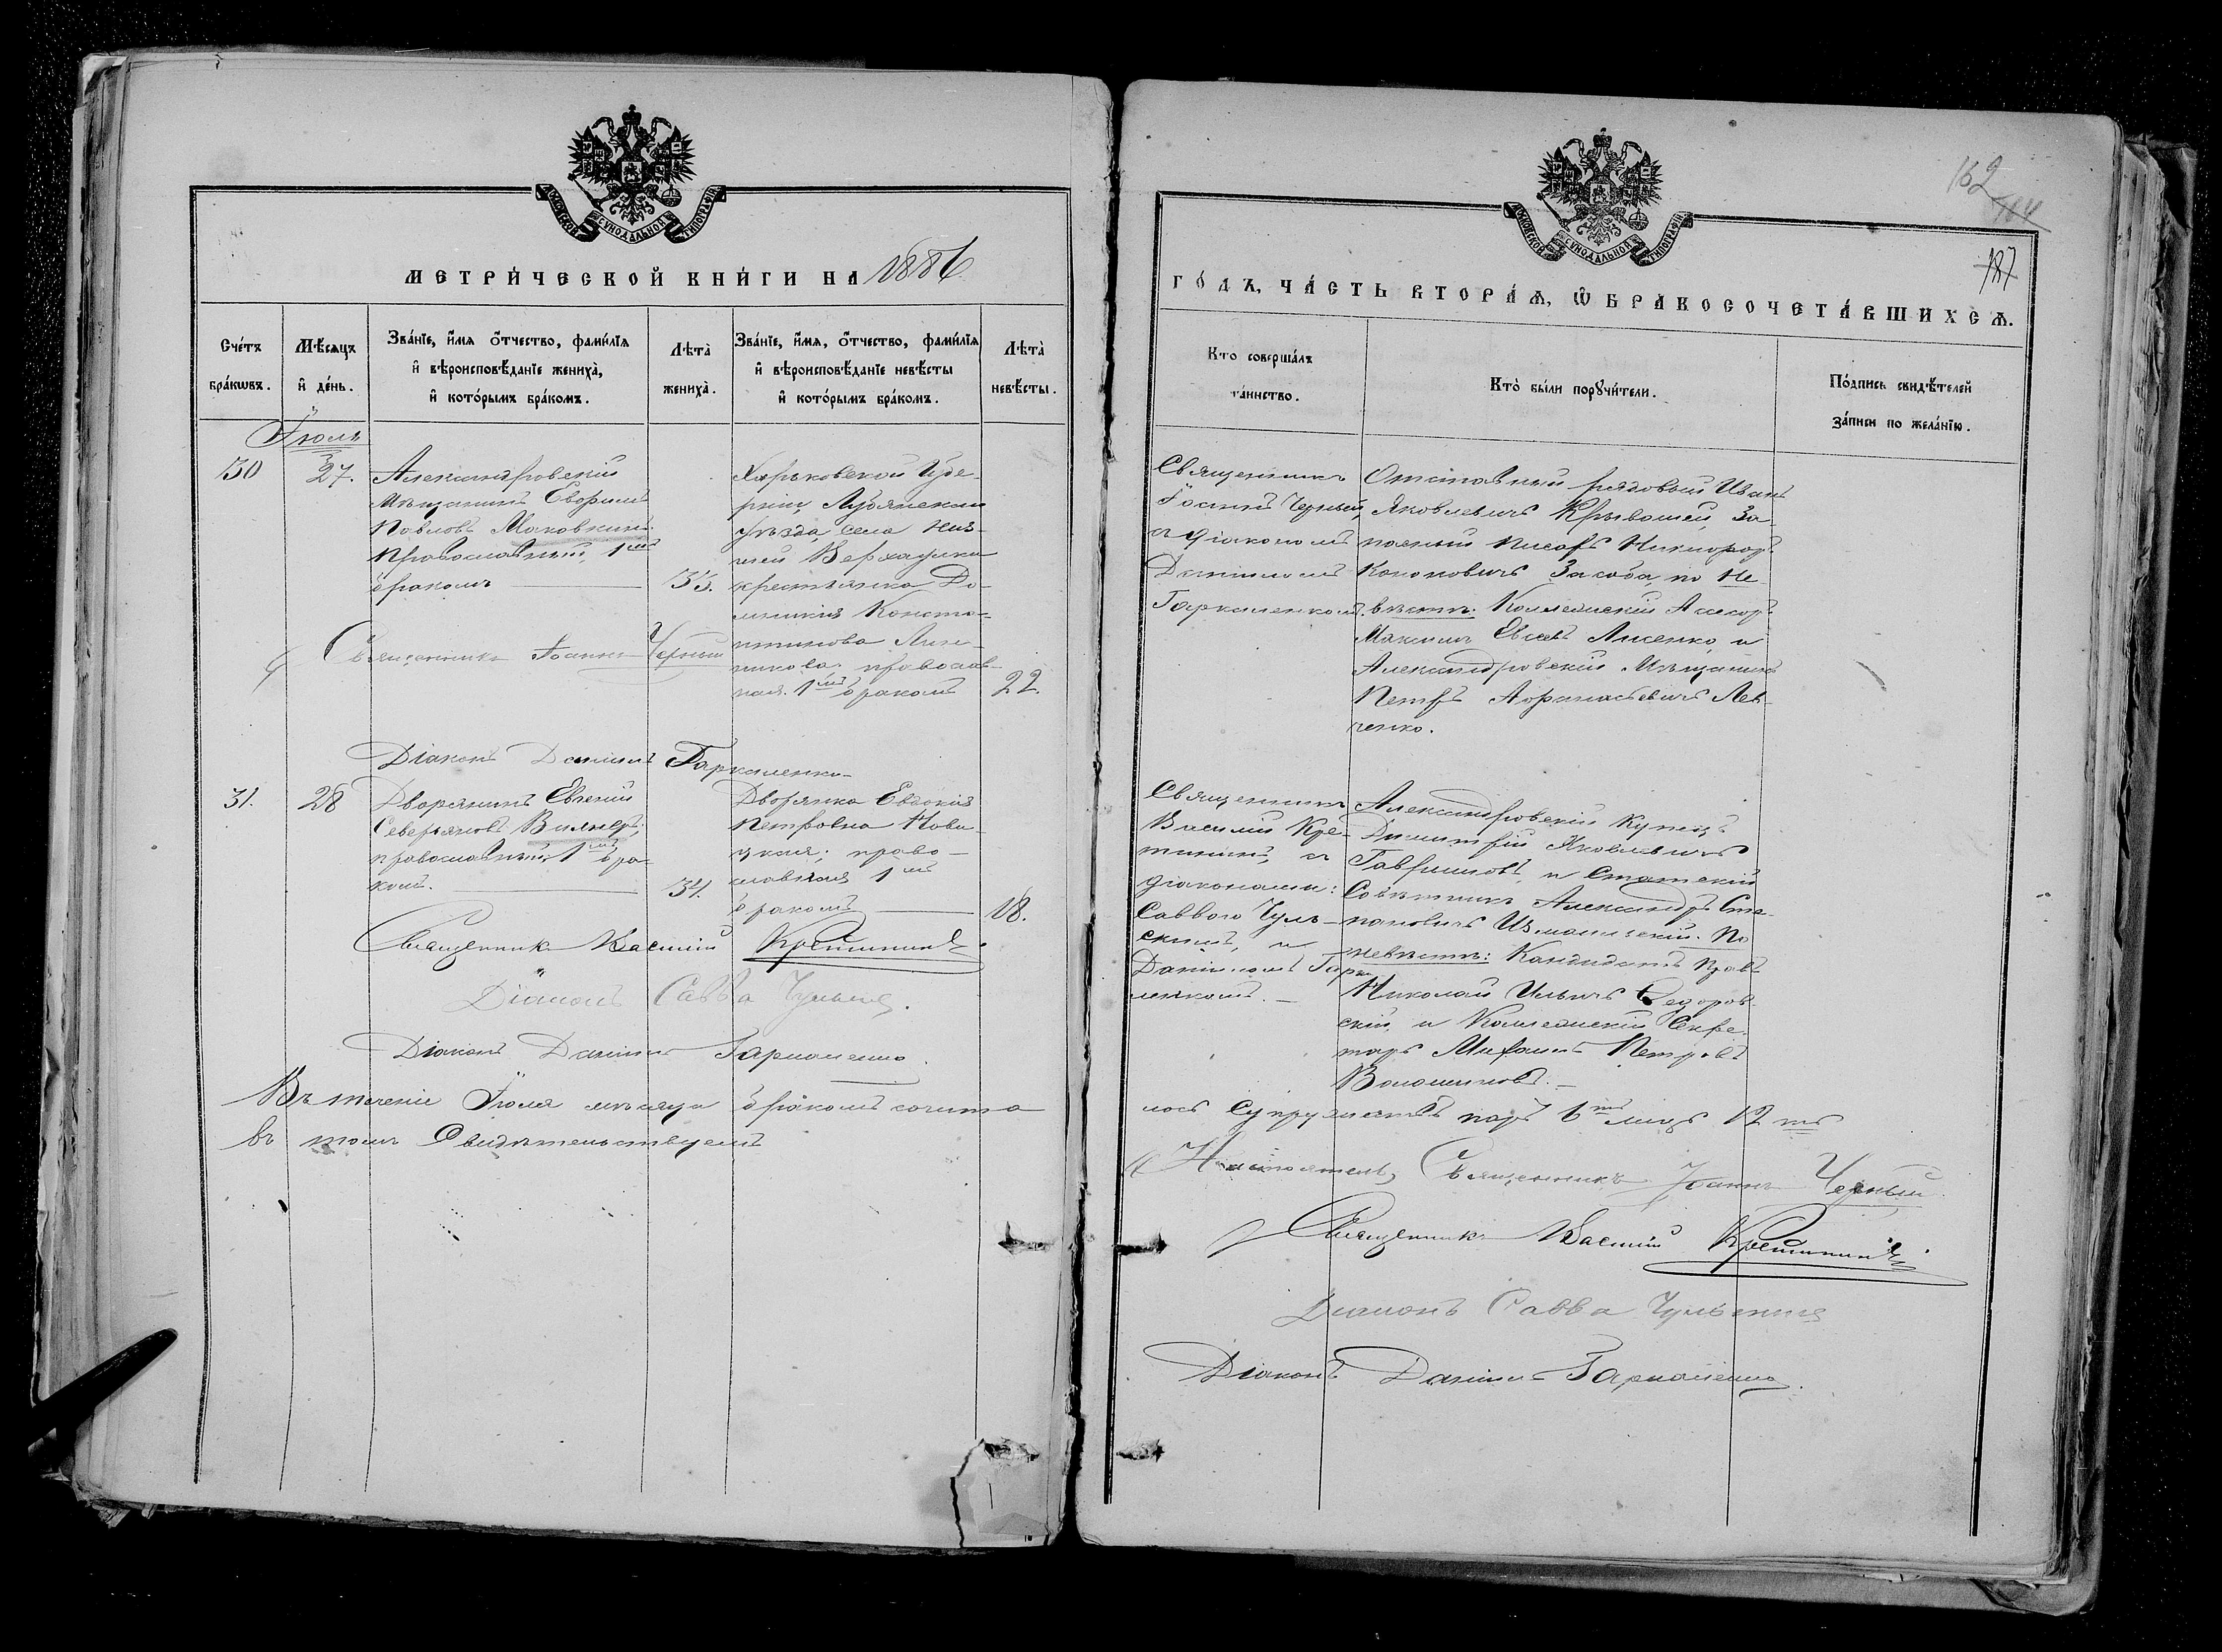 МОСКОВСКОЙ СѴНОДАЛЬНОЙ ТИПОГРАФІИ
МЕТРИ́ЧЕСКОЙ КНИ́ГИ НА 1886
Сче́тъ бра́кωвъ.
Мѣ́сяцъ и҆ де́нь.
Зва́нїе, и҆́мя ѻ҆́тчество, фами́лїя
и҆ вѣроисповѣ́данїе жениха̀,
и҆ кото́рымъ бра́комъ.
Лѣта̀ жениха̀.
Зва́нїе, и҆́мя, ѻ҆́тчество, фами́лїя
и҆ вѣроисповѣ́данїе невѣ́сты
и҆ кото́рымъ бра́комъ.
Лѣта̀ невѣ́сты.
Іюль
30
27.
Александровскій
мѣщанинъ Евфимъ
Павловъ Маковкинъ
православный, 1мъ
бракомъ
33.
Харьковской Губе-
рніи
уѣзда, села Ниж-
ней Верхаумки
крестьянка До-
мникія Конста-
нтинова
православ-
ная. 1мъ бракомъ
22.
Священникъ Іоаннъ Черный
Діаконъ Даніилъ Гаркаленко
31.
28
Дворянинъ Евгеній
Северьяновъ Вилнеръ;
православный 1мъ бра-
комъ.
34.
Дворянка Евдокія
Петровна Нови-
цкая; право-
славная 1мъ
бракомъ
18.
Священникъ Василій Кретининъ.
Діаконъ Савва Чульскій.
Діаконъ Даніилъ Гаркаленко.
Въ теченіе Іюля мѣсяца бракомъ сочита
въ томъ Свидѣтельствуемъ
МОСКОВСКОЙ СѴНОДАЛЬНОЙ ТИПОГРАФІИ
162
187
ГО́ДЪ, ЧА́СТЬ ВТОРА́Ѧ, Ѡ҆ БРАКОСОЧЕТА́ВШИХСѦ.
Кто совершалъ
та́инство.
Кто̀ бы́ли порꙋчи́тели.
По́дпись свидѣ́телей
за́писи по жела́нїю.
Священникъ
Іоаннъ Черный,
съ діакономъ
Даніиломъ
Гаркаленкомъ.
Отставный рядовый Иванъ
Яковлевичъ Кривошей, За-
пасный писарь Никифоръ
Кононовичъ Засоба, по не-
вѣстѣ: Коллежскій Ассесоръ
Максимъ Евсевъ Лисенко, и
Александровскій Мѣщанинъ
Петръ Афанасьевичъ Лев-
ченко.
Священникъ
Василій Кре-
тининъ, съ
діаконами:
Саввою Чуль-
скимъ, и
Даніиломъ Гарка
ленкомъ.
Александровскій купецъ
Димитрій Яковлевичъ
Гавриловъ, и Статскій
Совѣтникъ Александръ Сте-
пановичъ Измаильскій. По
невѣстѣ: Кандидатъ правъ
Николай Ильичъ Федоров-
скій, и Коллежскій Секре-
тарь Михаилъ Петровъ
Волошиновъ.
лось супружествъ паръ 6ть лицъ 12ть
Настоятель, Священникъ Іоаннъ Черный
Священникъ Василій Кретининъ
Діаконъ Савва Чульскій
Діаконъ Даніилъ Гаркаленко.